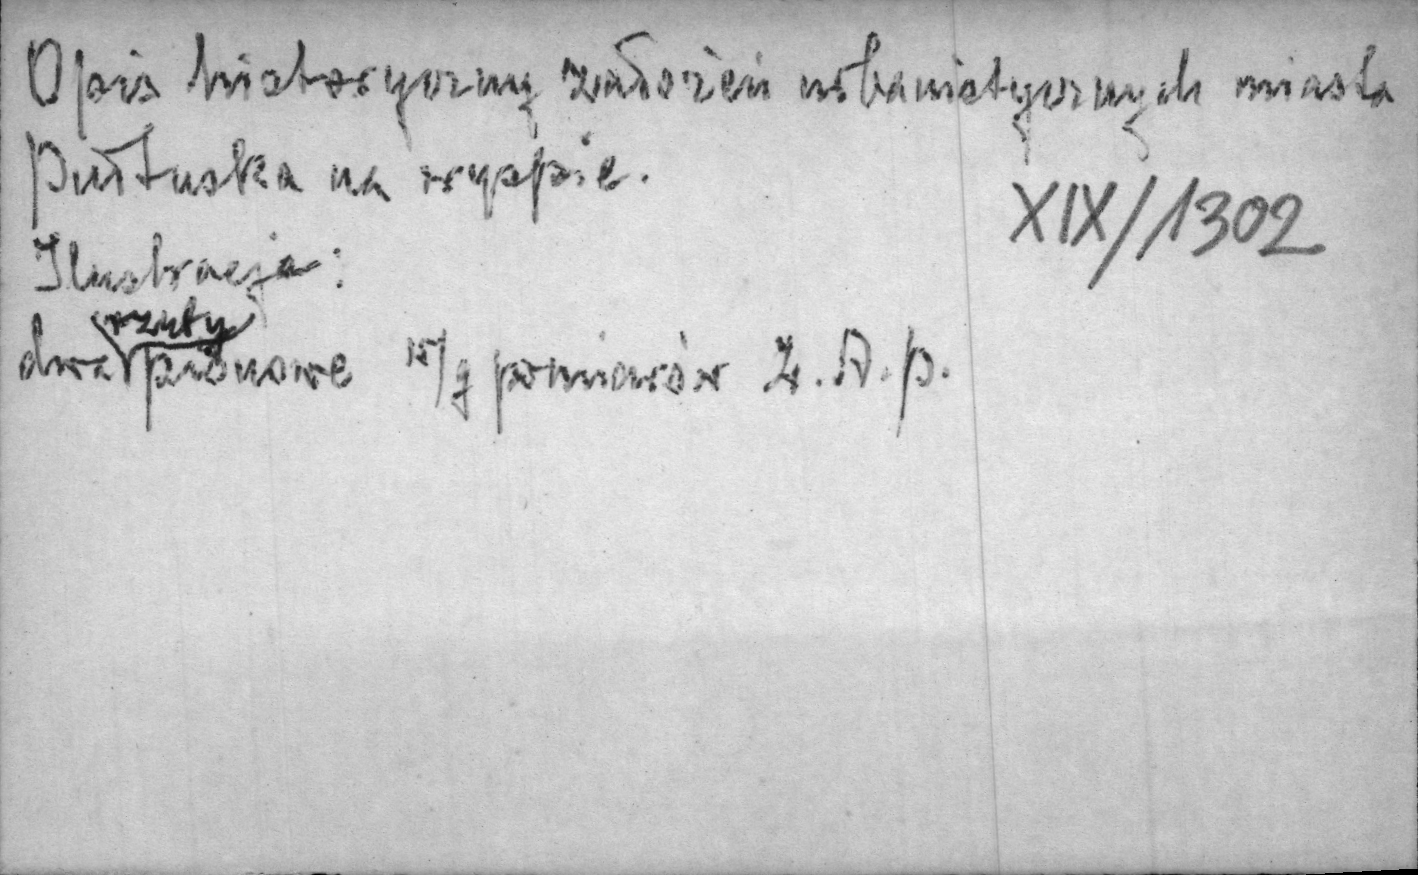 Opis historyczny założeń urbanistycznych miasta
Pułtuska na wyspie.
XIX/1302
Ilustracja:
dwa rzuty pionowe w/g pomiarów Z.A.P.